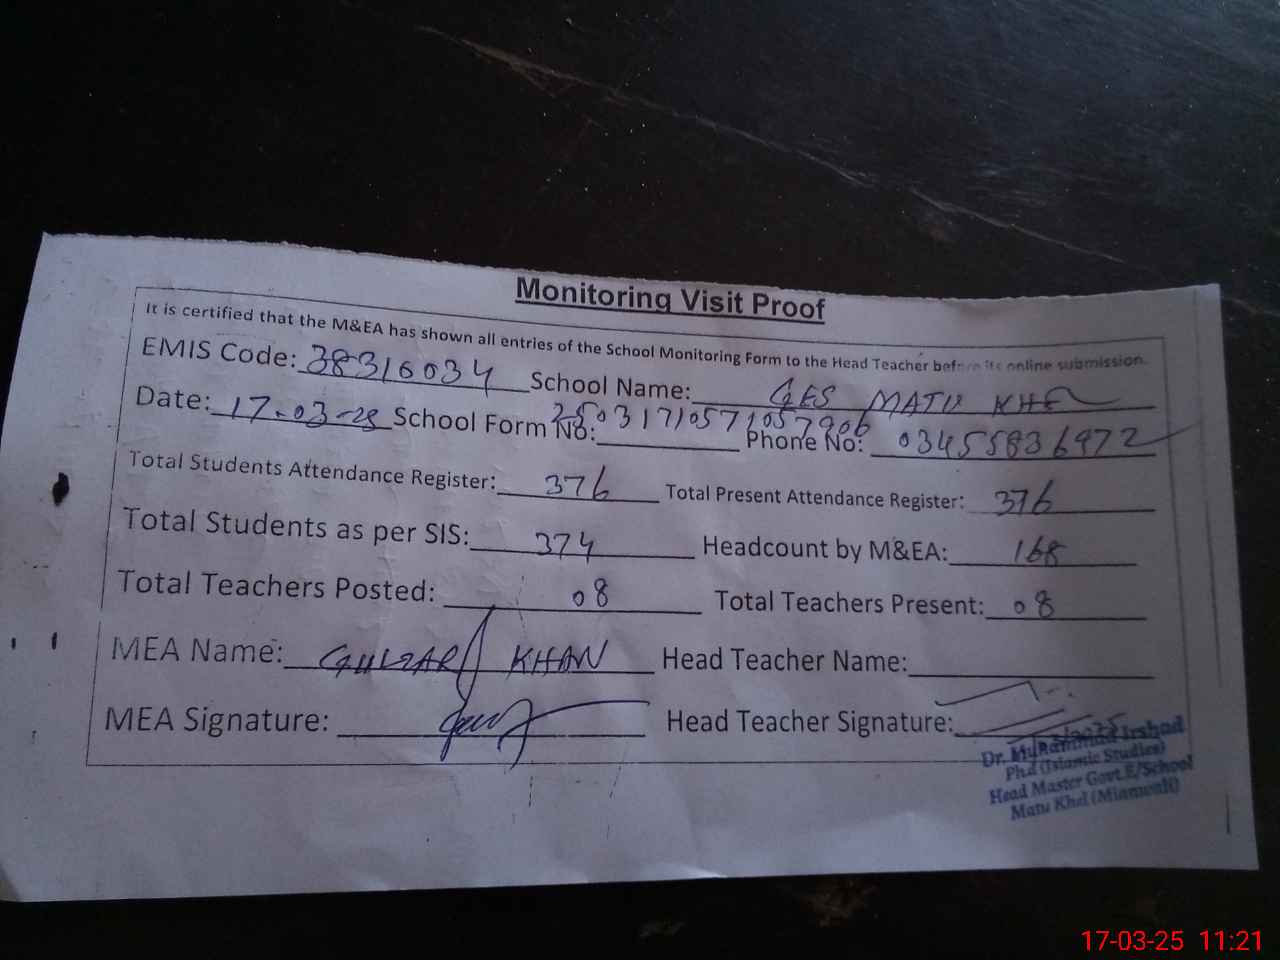 Monitoring Visit Proof
It is certified that the M&EA has shown all entries of the School Monitoring Form to the Head Teacher before its online submission.
EMIS Code: 38316034 School Name: GES MATU KHEL
Date: 17-03-25 School Form No: 25031710571057906 Phone No: 03455836972
Total Students Attendance Register: 376 Total Present Attendance Register: 376
Total Students as per SIS: 374 Headcount by M&EA: 168
Total Teachers Posted: 08 Total Teachers Present: 08
MEA Name: GULZAR KHAN Head Teacher Name:
MEA Signature: Head Teacher Signature:
Dr. Muhammad Irshad
Ph.d (Islamic Studies)
Head Master Govt.E/School
Matu Khel (Mianwali)
17-03-25 11:21